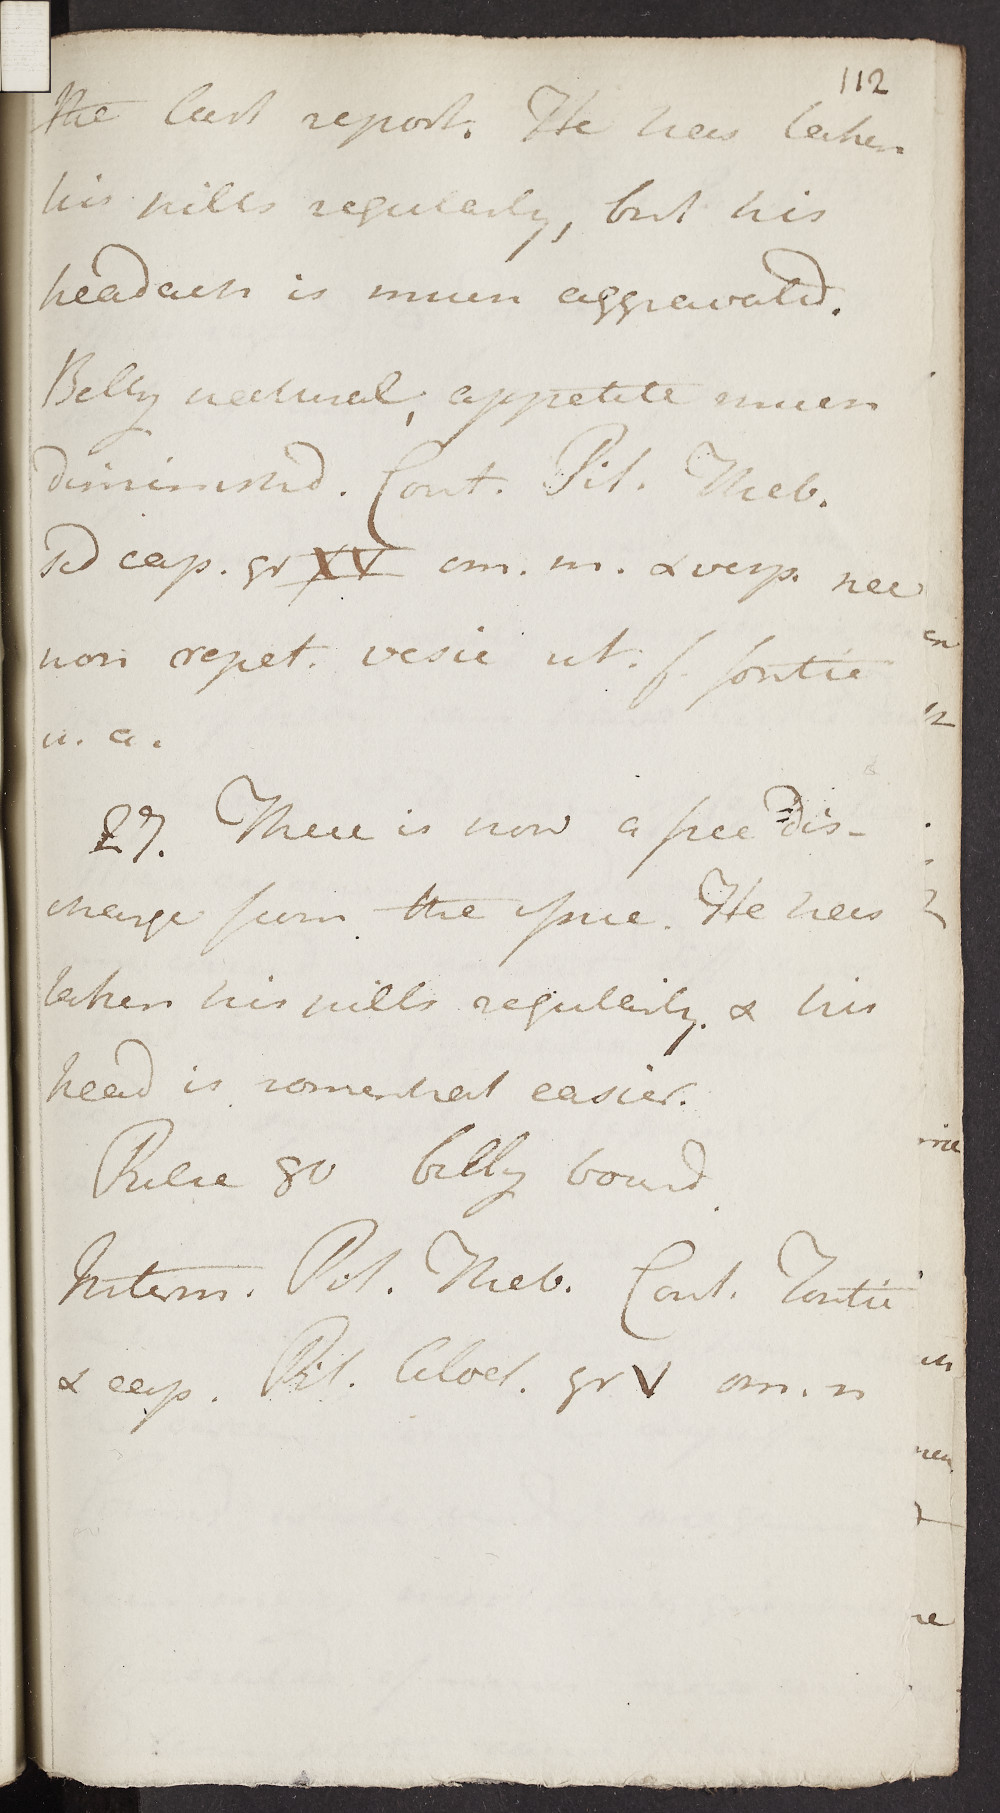 112
the last report. He has taken
his pills regularly, but his
headach is much aggravated.
Belly natural, appetite much
diminished. Cont. Pil. Theb.
sed cap. gr XV om. m. & vesp. nec
non repet. vesic ut. f. fontic
u. a.
27. There is now a free dis-
charge from the issue. He has
taken his pills regularly. & his
head is somewhat easier.
Pulse 80 belly bound.
Interm. Pil. Theb. Cont. Fontic
& cap. Pil. Aloet. gr V om. n